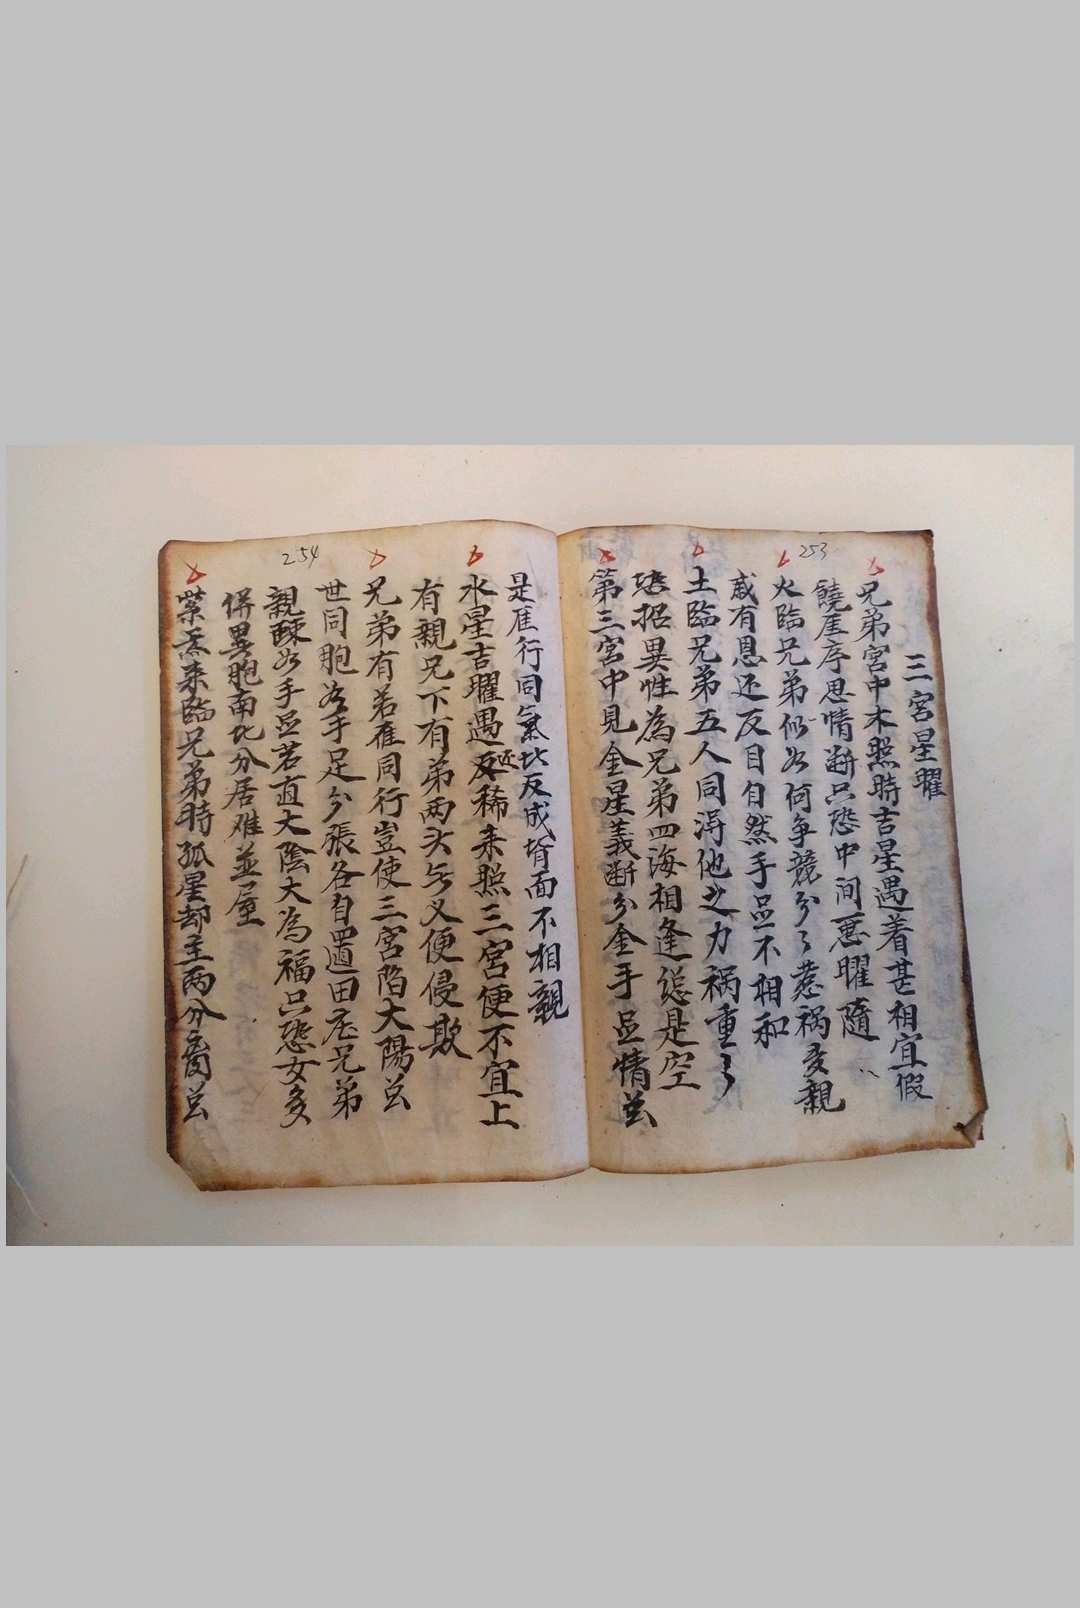 253
三宮星曜
兄弟宮中木照時吉星遇着甚相宜假
饒序思情断只恐中间惡曜隨
火臨兄弟似如何争競分々惹禍多親
戚有恩还反目自然手足不相和
土臨兄弟五人同得他之力祸重々
招異性為兄弟四海相逢是空
第三宮中見金星義断分金手足情
254
是行同氣比反成背面不相親
水星吉曜遇还反稀来照三宮便不宜上
有親兄下有弟两头無义便侵欺
兄弟有若雁同行豈使三宮陷大陽
世同胞如手足分張各自置田庄兄弟
親踈如手足若直大陰大為福只恐女多
併異胞南北分居难並屋
紫炁来臨兄弟時孤星却主两分